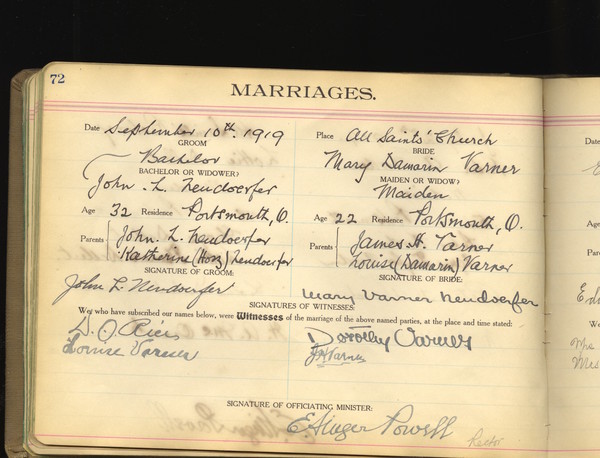 72
MARRIAGES.
Date September 10th. 1919
Place All Saints' Church
GROOM
Bachelor
BACHELOR OR WIDOWER?
John L. Neudoerfer
Age 32 Residence Portsmouth, O.
Parents John. L. Neudoerfer
Katherine (Horz) Neudoerfer
SIGNATURE OF GROOM:
John L Neudoerfer
BRIDE
Mary Damarin Varner
MAIDEN OR WIDOW?
Maiden
Age 22 Residence Portsmouth, O.
Parents James A. Varner
Louise (Damarin) Varner
SIGNATURE OF BRIDE:
Mary Varner Neudoerfer
SIGNATURES OF WITNESSES
We, who have subscribed our names below, were Witnesses of the marriage of the above named parties, at the place and time stated:
Louise Varner
Dorothy Varner
SIGNATURE OF OFFICIATING MINISTER:
E Ainger Powell
Rector
Date
Age
Parents
We
Mrs